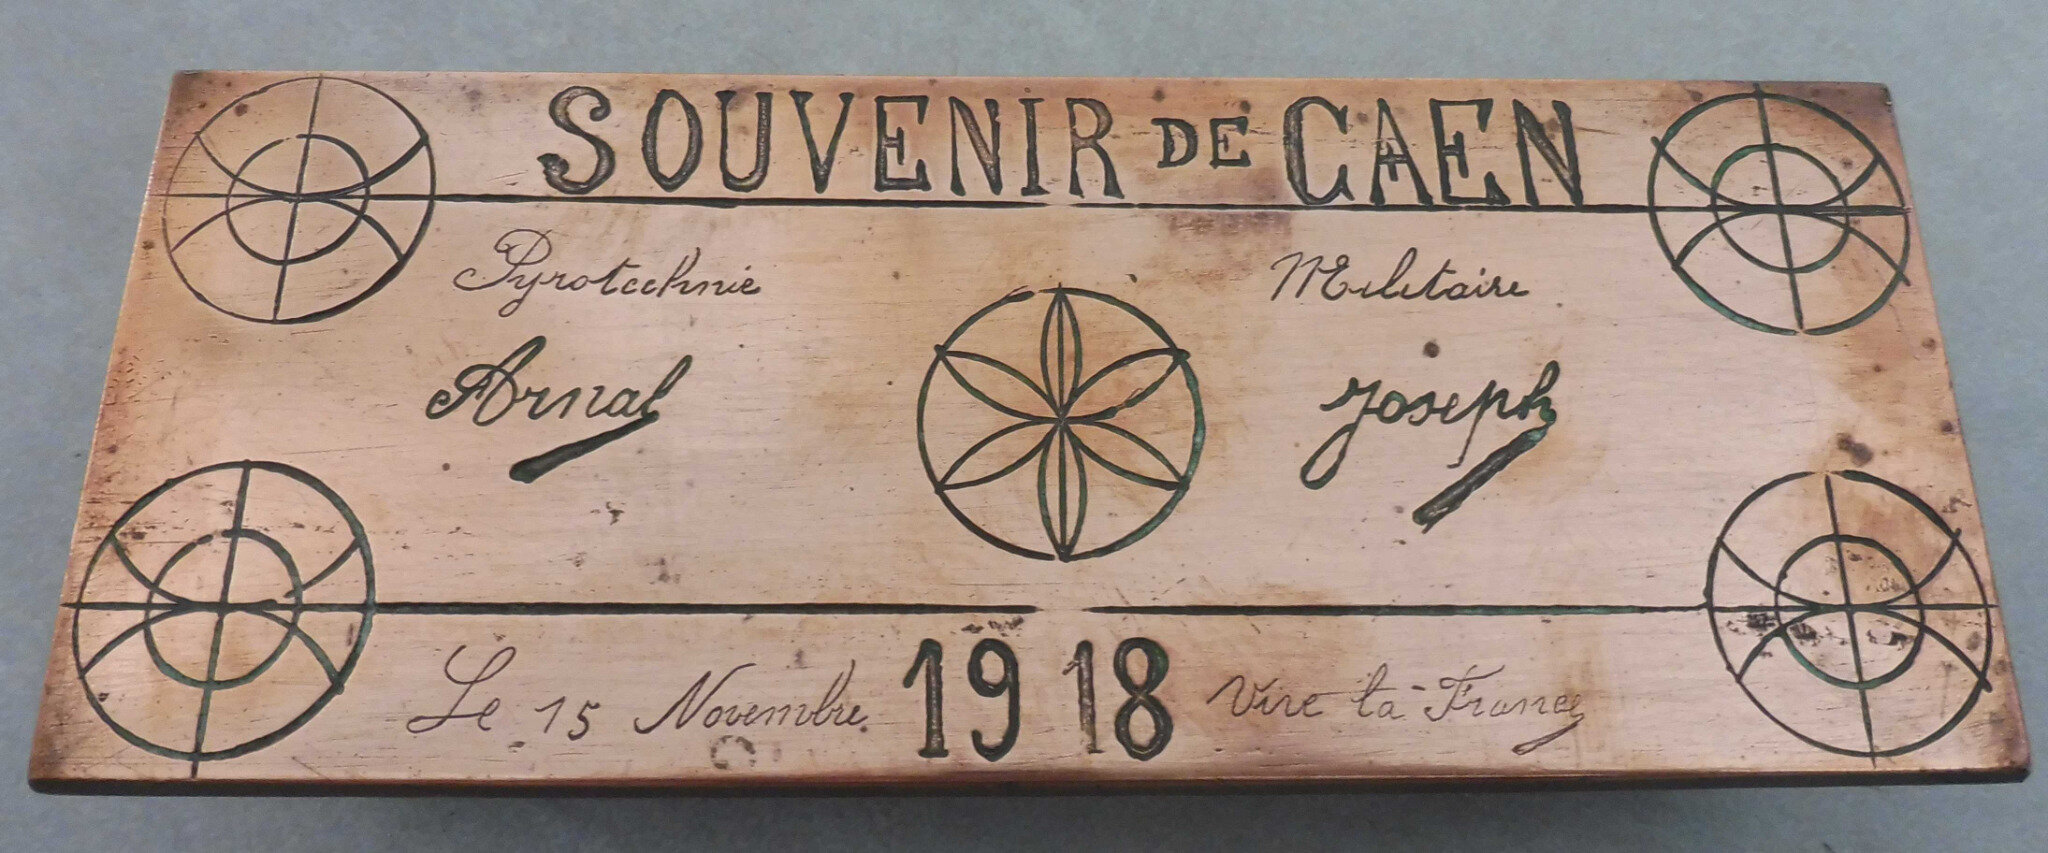 SOUVENIR DE CAEN
Pyrotechnie Militaire
Arnal Joseph
Le 15 Novembre 1918 Vive la France